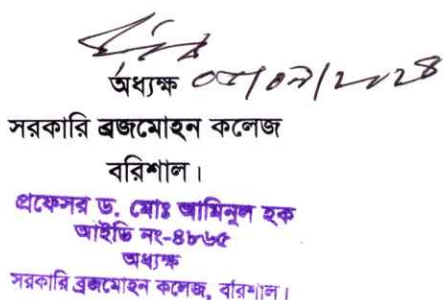 অধ্যক্ষ
সরকারি ব্রজমোহন কলেজ
বরিশাল।
প্রফেসর ড. মোঃ আমিনুল হক
আইডি নং-৪৮৬৫
অধ্যক্ষ
সরকারি ব্রজমোহন কলেজ, বরিশাল।